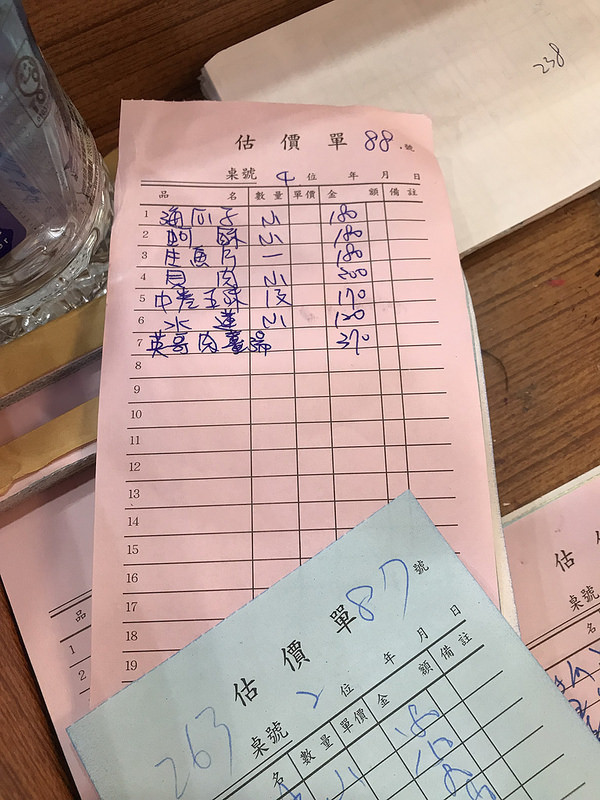 238
估價單 88.號
桌號 4 位 年 月 日
品名 數量 單價 金額 備註
1 海瓜子 小 180
2 蚵酥 小 180
3 生魚片 一 180
4 肉 小 200
5 中卷五味 170
6 水蓮 小 120
7 英哥肉薑湯 370
8
9
10
11
12
13
14
15
16
17
18
19
估價單 87 號
263
桌號 2 位 年 月 日
名 數量 單價 金額 備註
小 180
估
桌號
品
1
2
3
4
名